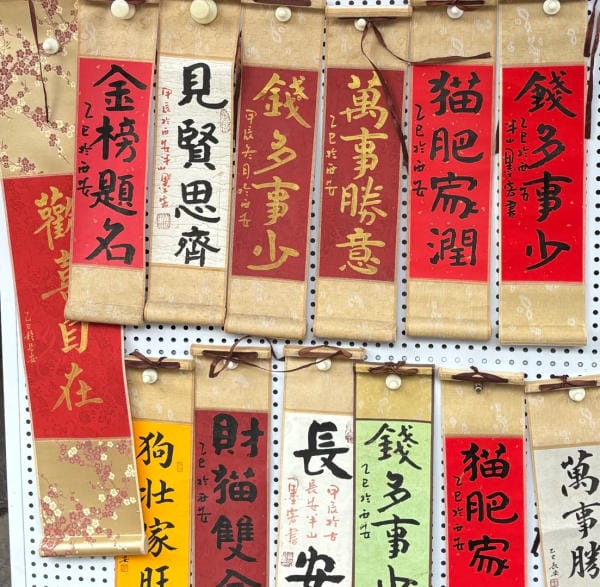 金榜題名
乙巳於西安
見賢思齊
甲辰於西安半山
錢多事少
甲辰冬月於西安
萬事勝意
乙巳於西安
猫肥家潤
乙巳於西安
錢多事少
乙巳於西安
歡喜自在
狗壯家旺
財猫雙全
乙巳於西安
長安
甲辰於古
長安半山
錢多事少
乙巳於西安
猫肥家
乙巳於西安
萬事勝